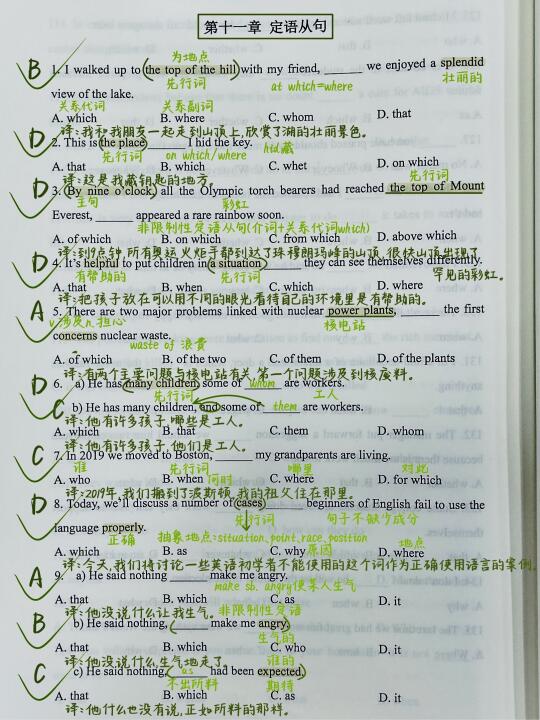 第十一章 定语从句
为地点
B 1. I walked up to the top of the hill with my friend, ______ we enjoyed a splendid
先行词 at which=where 壮丽的
view of the lake.
关系代词 关系副词
A. which B. where C. whom D. that
译:我和我朋友一起走到山顶上,欣赏了湖的壮丽景色。
D 2. This is the place ______ I hid the key.
先行词 on which/where hid藏
A. that B. which C. whet D. on which
译:这是我藏钥匙的地方。 先行词
D 3. By nine o'clock, all the Olympic torch bearers had reached the top of Mount
主句 彩虹
Everest, ______ appeared a rare rainbow soon.
非限制性定语从句(介词+关系代词which)
A. of which B. on which C. from which D. above which
译:到9点钟,所有奥运火炬手都到达了珠穆朗玛峰的山顶,很快山顶出现了
罕见的彩虹。
D 4. It's helpful to put children in a situation ______ they can see themselves differently.
有帮助的 先行词
A. that B. when C. which D. where
译:把孩子放在可以用不同的眼光看待自己的环境里是有帮助的。
A 5. There are two major problems linked with nuclear power plants, ______ the first
v.涉及n.担心 核电站
concerns nuclear waste.
waste of 浪费
A. of which B. of the two C. of them D. of the plants
译:有两个主要问题与核电站有关,第一个问题涉及到核废料。
D 6. a) He has many children, some of whom are workers.
先行词 工人
C b) He has many children, and some of them are workers.
A. which B. that C. them D. whom
译:他有许多孩子,哪些是工人。
译:他有许多孩子,他们是工人。
C 7. In 2019 we moved to Boston, ______ my grandparents are living.
谁 先行词 哪里 对此
A. who B. when 何时 C. where D. for which
译:2019年,我们搬到了波斯顿,我的祖父住在那里。
D 8. Today, we'll discuss a number of cases ______ beginners of English fail to use the
先行词 句子不缺少成分
language properly.
正确 抽象地点:situation,point,race,position
A. which B. as C. why 原因 D. where 地点
译:今天,我们将讨论一些英语初学者不能使用的这个词作为正确使用语言的案例。
A 9. a) He said nothing ______ make me angry.
make sb. angry使某人生气
A. that B. which C. as D. it
译:他没说什么让我生气。 非限制性定语
B b) He said nothing, ______ make me angry.
生气的
A. that B. which C. who D. it
译:他没说什么,生气地走了。 谁的
C c) He said nothing, as had been expected.
不出所料 期待
A. that B. which C. as D. it
译:他什么也没有说,正如所料的那样。